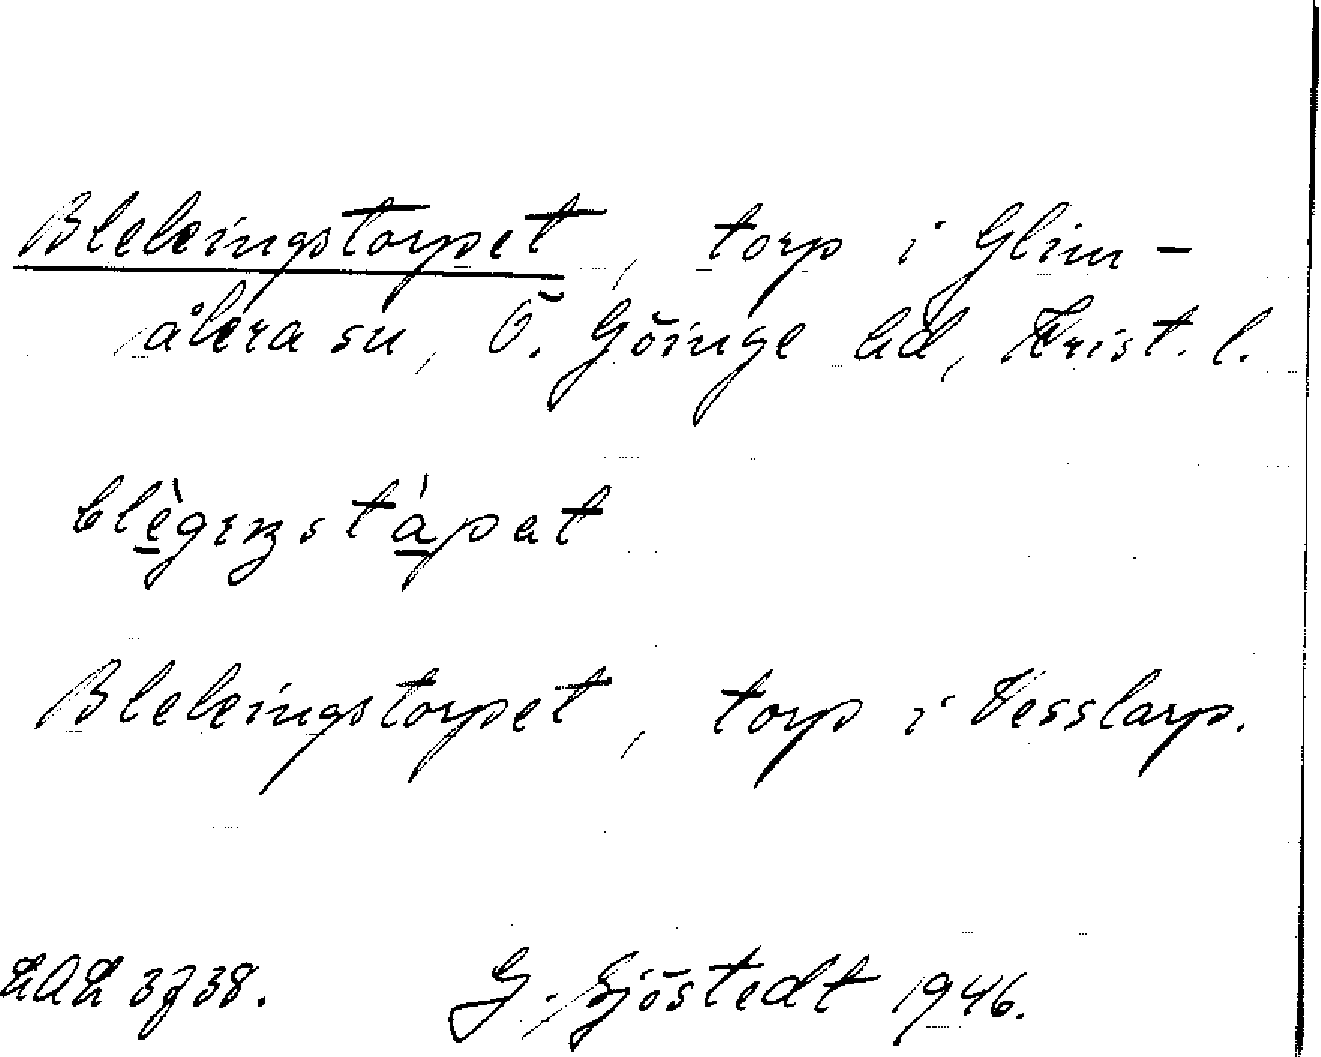 Blekingstorpet, torp i Glim-
åkra sn, Ö. Göinge hd, Krist. l.
blègɪŋstápət
Blekingstorpet, torp i Vesslarp.
LAL 3738. G. Sjöstedt 1946.